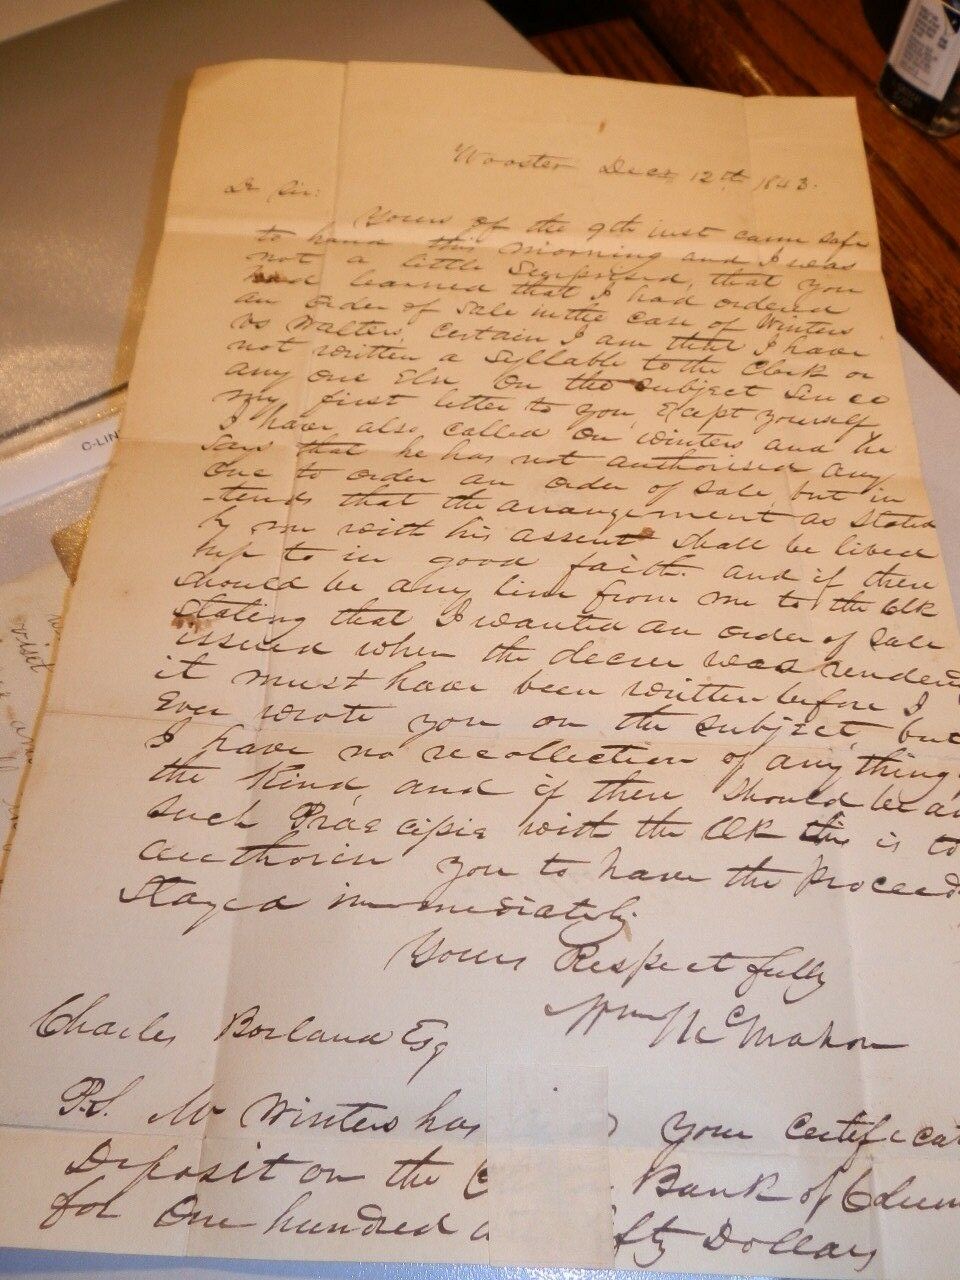 Wooster Decr 12th 1843.
Dr Sir:
Yours of the 9th inst came safe
to hand this morning and I was
not a little Surprised, that you
had learned that I had ordered
an order of Sale in the case of Winters
vs Walters, Certain I am that I have
not written a Syllable to the Clerk or
any one Else On the subject Since
my first letter to you, Except yourself
I have also called on Winters and he
Says that he has not authorised any
one to order an order of Sale, but in
-tends that the arrangement as stated
by me with his assent shall be lived
up to in good faith. and if there
should be any line from me to the Clk
stating that I wanted an order of Sale
issued when the decree was rendered
it must have been written before I
Ever wrote you on the subject, but
I have no recollection of any thing
the Kind, and if there should be an
such Praecipie with the Clk this is to
authorise you to have the Proceed
Stayed immediately.
Yours Respectfully
Wm McMahon
Charles Borland Esq
P.S. Mr Winters has your Certificat
Deposit on the Bank of Colum
for One hundred a fty Dollars
C-LIN
visit